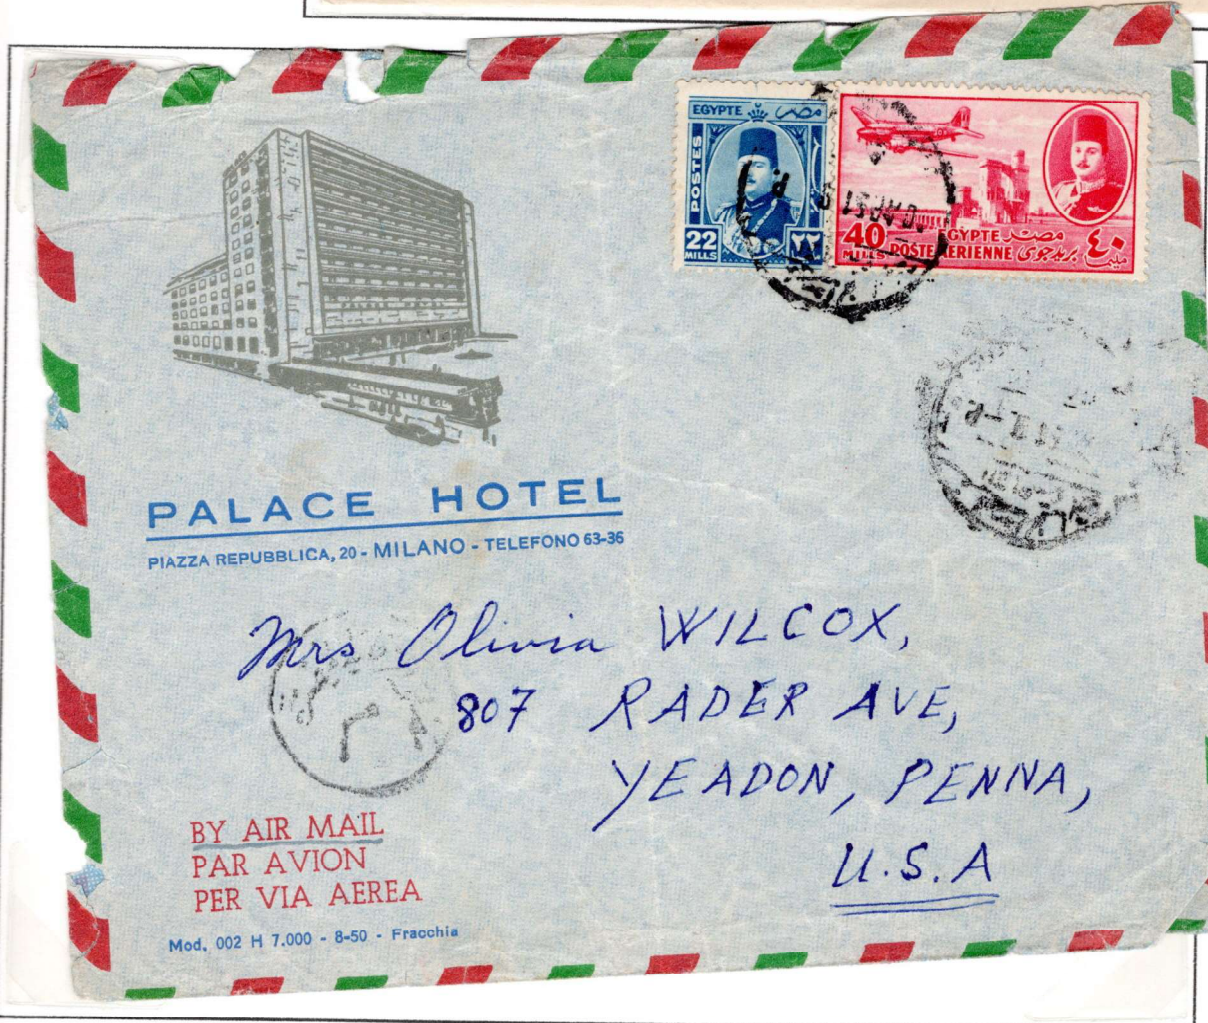 EGYPTE مصر
POSTES
22 ٢٢
MILLS
40 EGYPTE مصر ٤٠
MILLS POSTE AERIENNE بريد جوى مليم
PALACE HOTEL
PIAZZA REPUBBLICA, 20 - MILANO - TELEFONO 63-36
Mrs Olivia WILCOX,
807 RADER AVE,
YEADON, PENNA,
U.S.A
BY AIR MAIL
PAR AVION
PER VIA AEREA
Mod. 002 H 7.000 - 8-50 - Fracchia